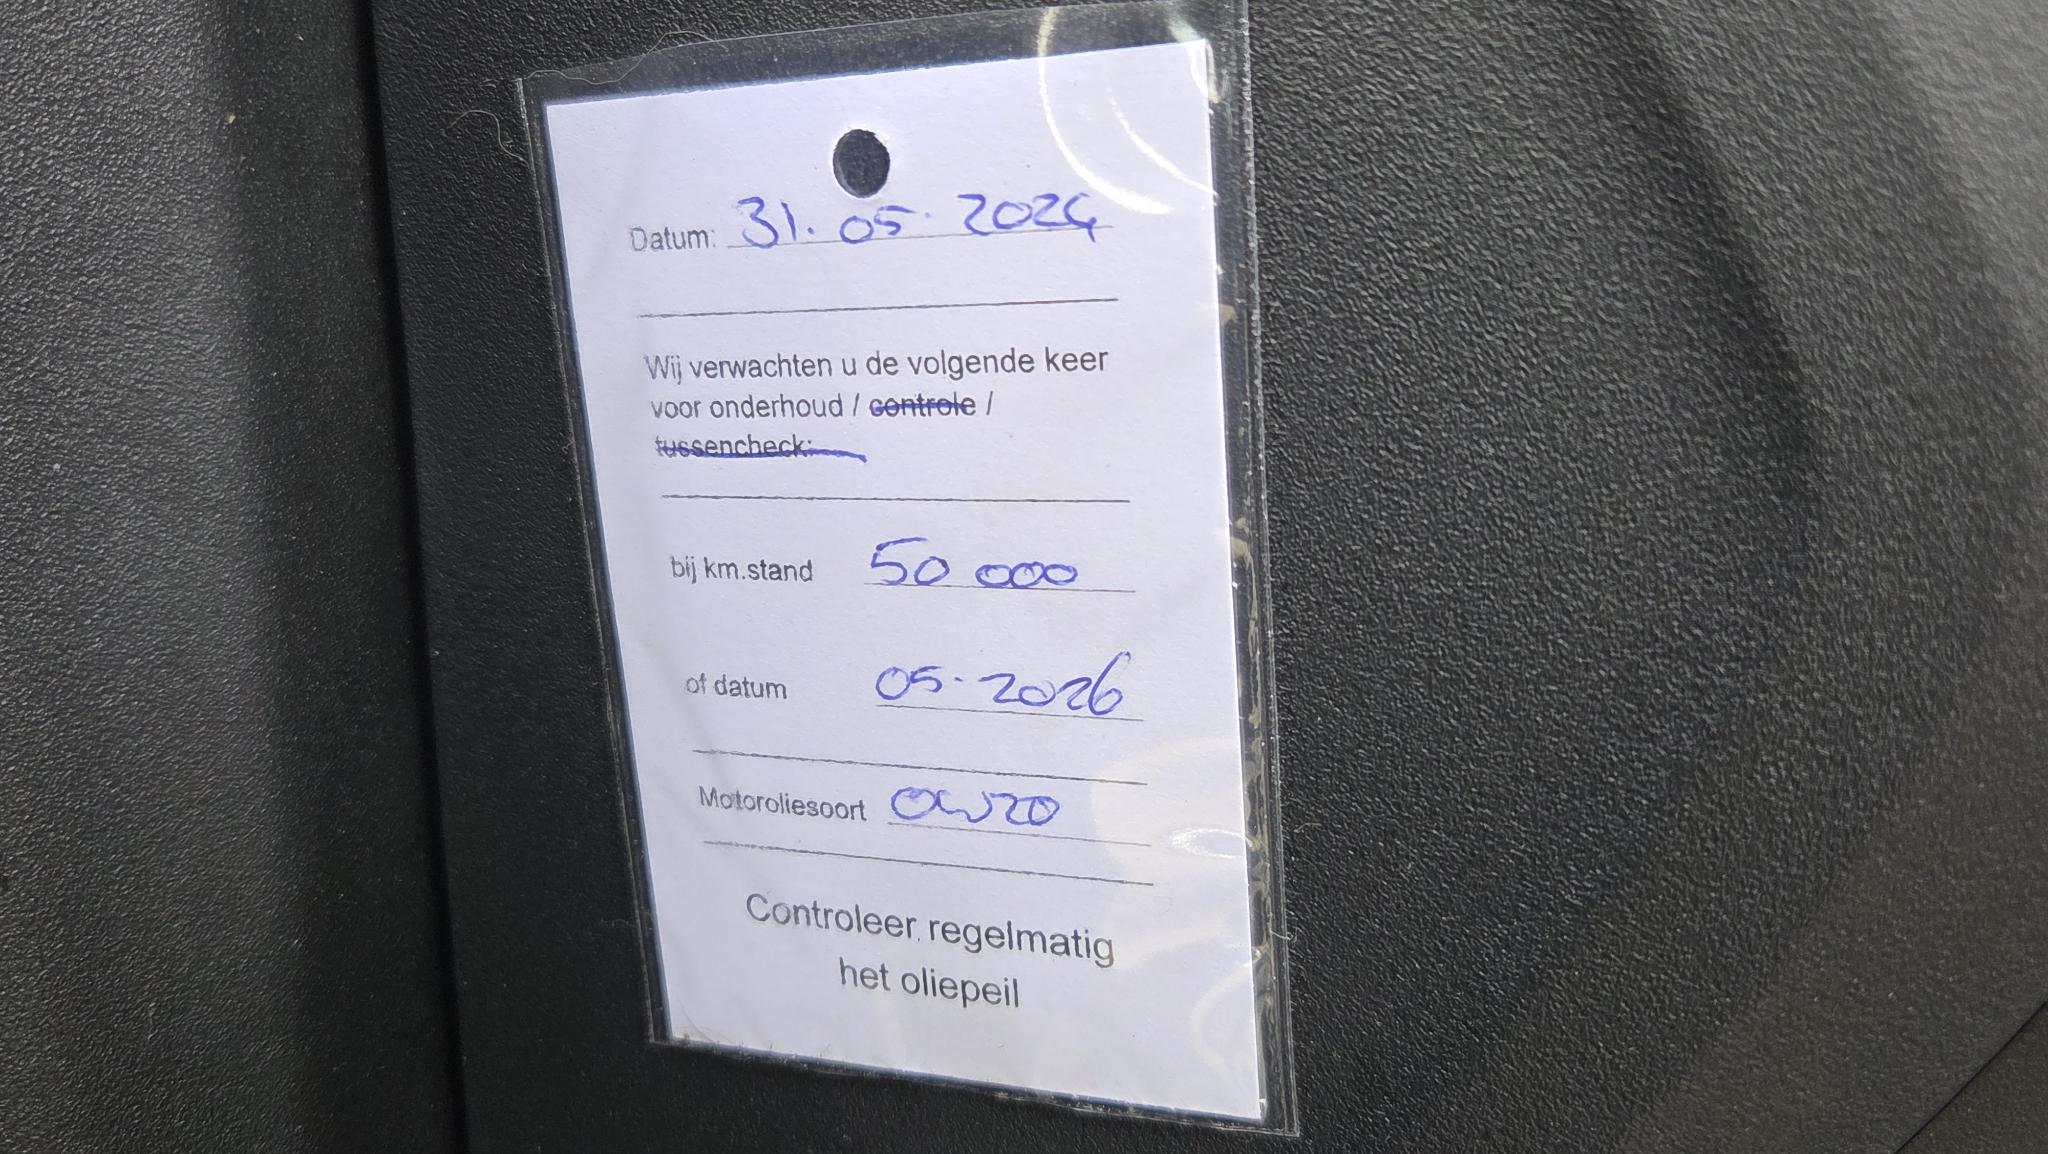 Datum: 31.05.2024
Wij verwachten u de volgende keer
voor onderhoud / controle /
tussencheck:
bij km.stand 50 000
of datum 05.2026
Motoroliesoort 0W20
Controleer regelmatig
het oliepeil